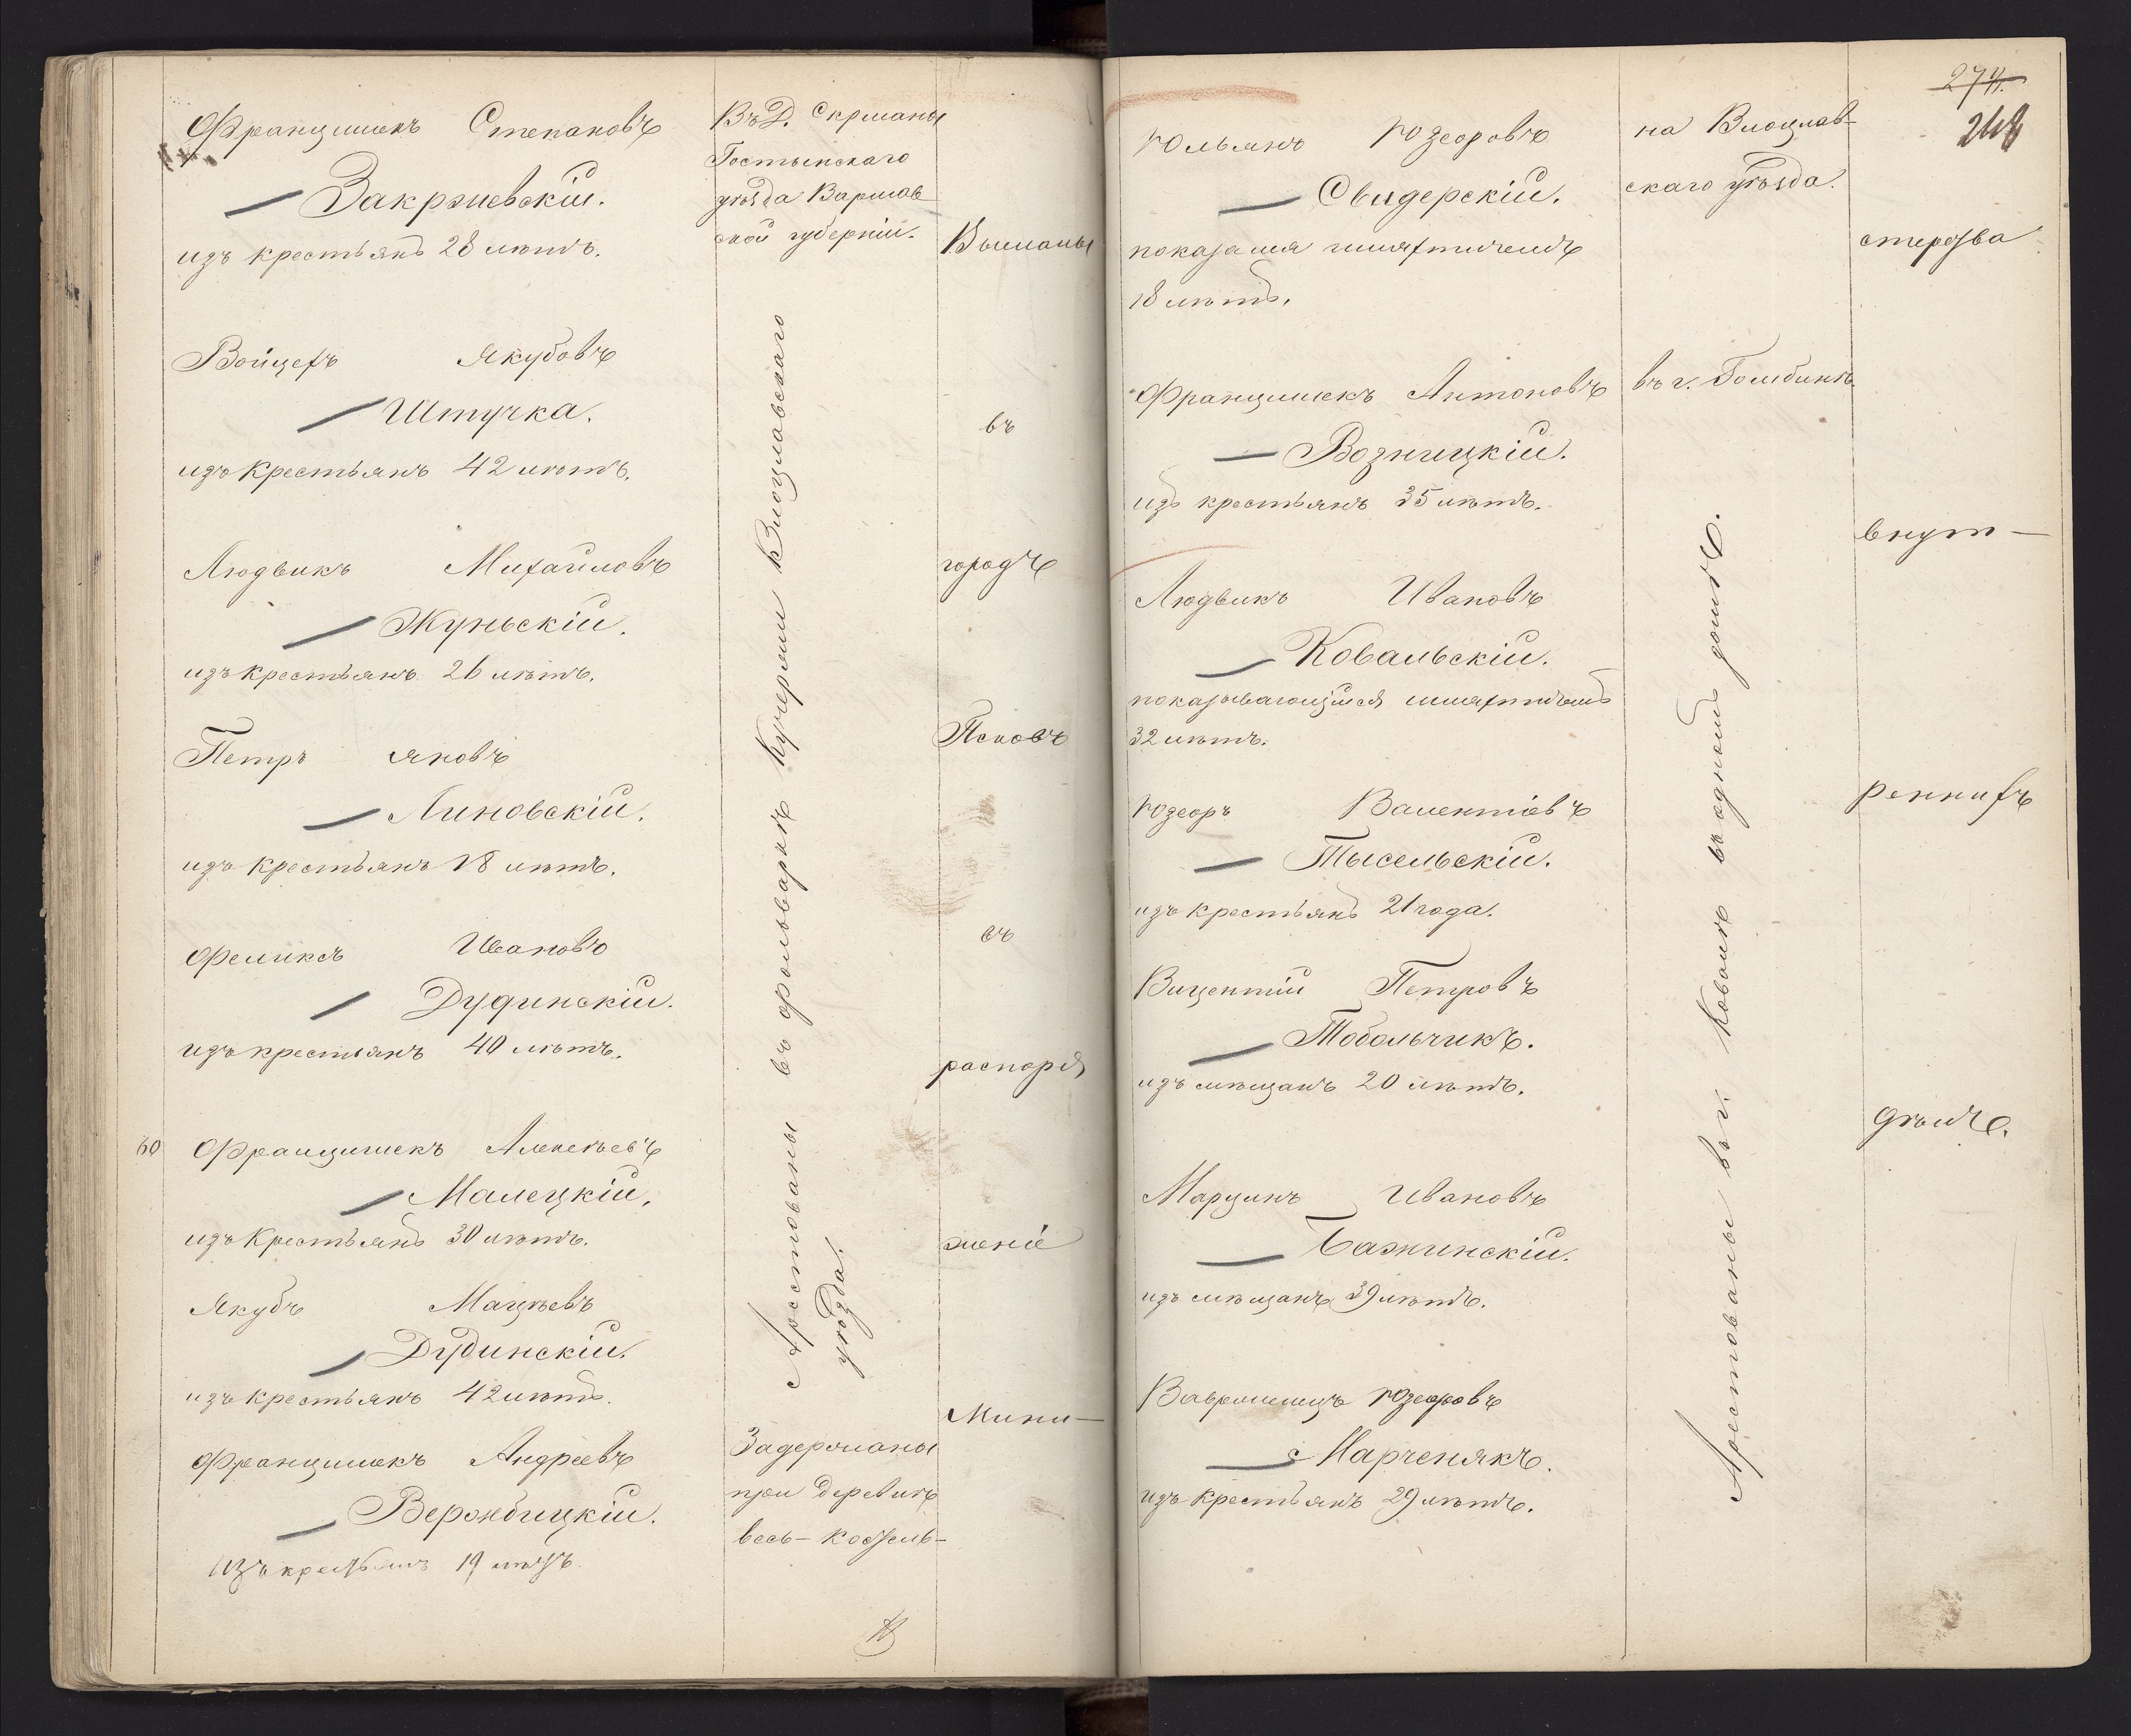 Францишекъ Степановъ
Закржевскій.
изъ крестьянъ 28 лѣтъ.
Въ Д. Скрманы
Гостынскаго
уѣзда Варшав
ской губерніи.
Высланы
Войцехъ Якубовъ
Штучка.
изъ крестьянъ 42 лѣтъ.
въ
Людвикъ Михайловъ
Жуньскій.
изъ крестьянъ 26 лѣтъ.
городъ
Петръ Яновъ
Линовскій.
изъ крестьянъ 18 лѣтъ.
Псковъ
Феликсъ Ивановъ
Дудинскій.
изъ крестьянъ 40 лѣтъ.
въ
распоря
60 Францишекъ Алексѣевъ
Малецкій.
изъ крестьянъ 30 лѣтъ.
женіе
Якубъ Мацѣевъ
Дудинскій.
изъ крестьянъ 42 лѣтъ.
Мини-
Францишекъ Андреевъ
Вержбицкій.
изъ крестьянъ 19 лѣтъ.
Арестованы въ фольваркѣ Кучерши Влоцлавскаго
уѣзда.
Задержаны
при деревнѣ
весь-Косцель-
274.
248
Юльянъ Юзефовъ
Свидерскій.
показался шляхтичемъ
18 лѣтъ.
на Влоцлав-
скаго уѣзда.
стерства
Францишекъ Антоновъ
Возницкій.
изъ крестьянъ 35 лѣтъ.
въ г. Гомбинѣ.
внут-
Людвикъ Ивановъ
Ковальскій.
показывающійся шляхтичемъ
32 лѣтъ.
Юзефъ Валентіевъ
Тысельскій.
изъ крестьянъ 21 года.
реннихъ
Вицентій Петровъ
Тобольчикъ.
изъ мѣщанъ 20 лѣтъ.
дѣлъ.
Марцинъ Ивановъ
Бажинскій.
изъ мѣщанъ 39 лѣтъ.
Вавржинецъ Юзефовъ
Марченякъ.
изъ крестьянъ 29 лѣтъ.
Арестованы въ г. Ковалѣ въ одномъ домѣ.